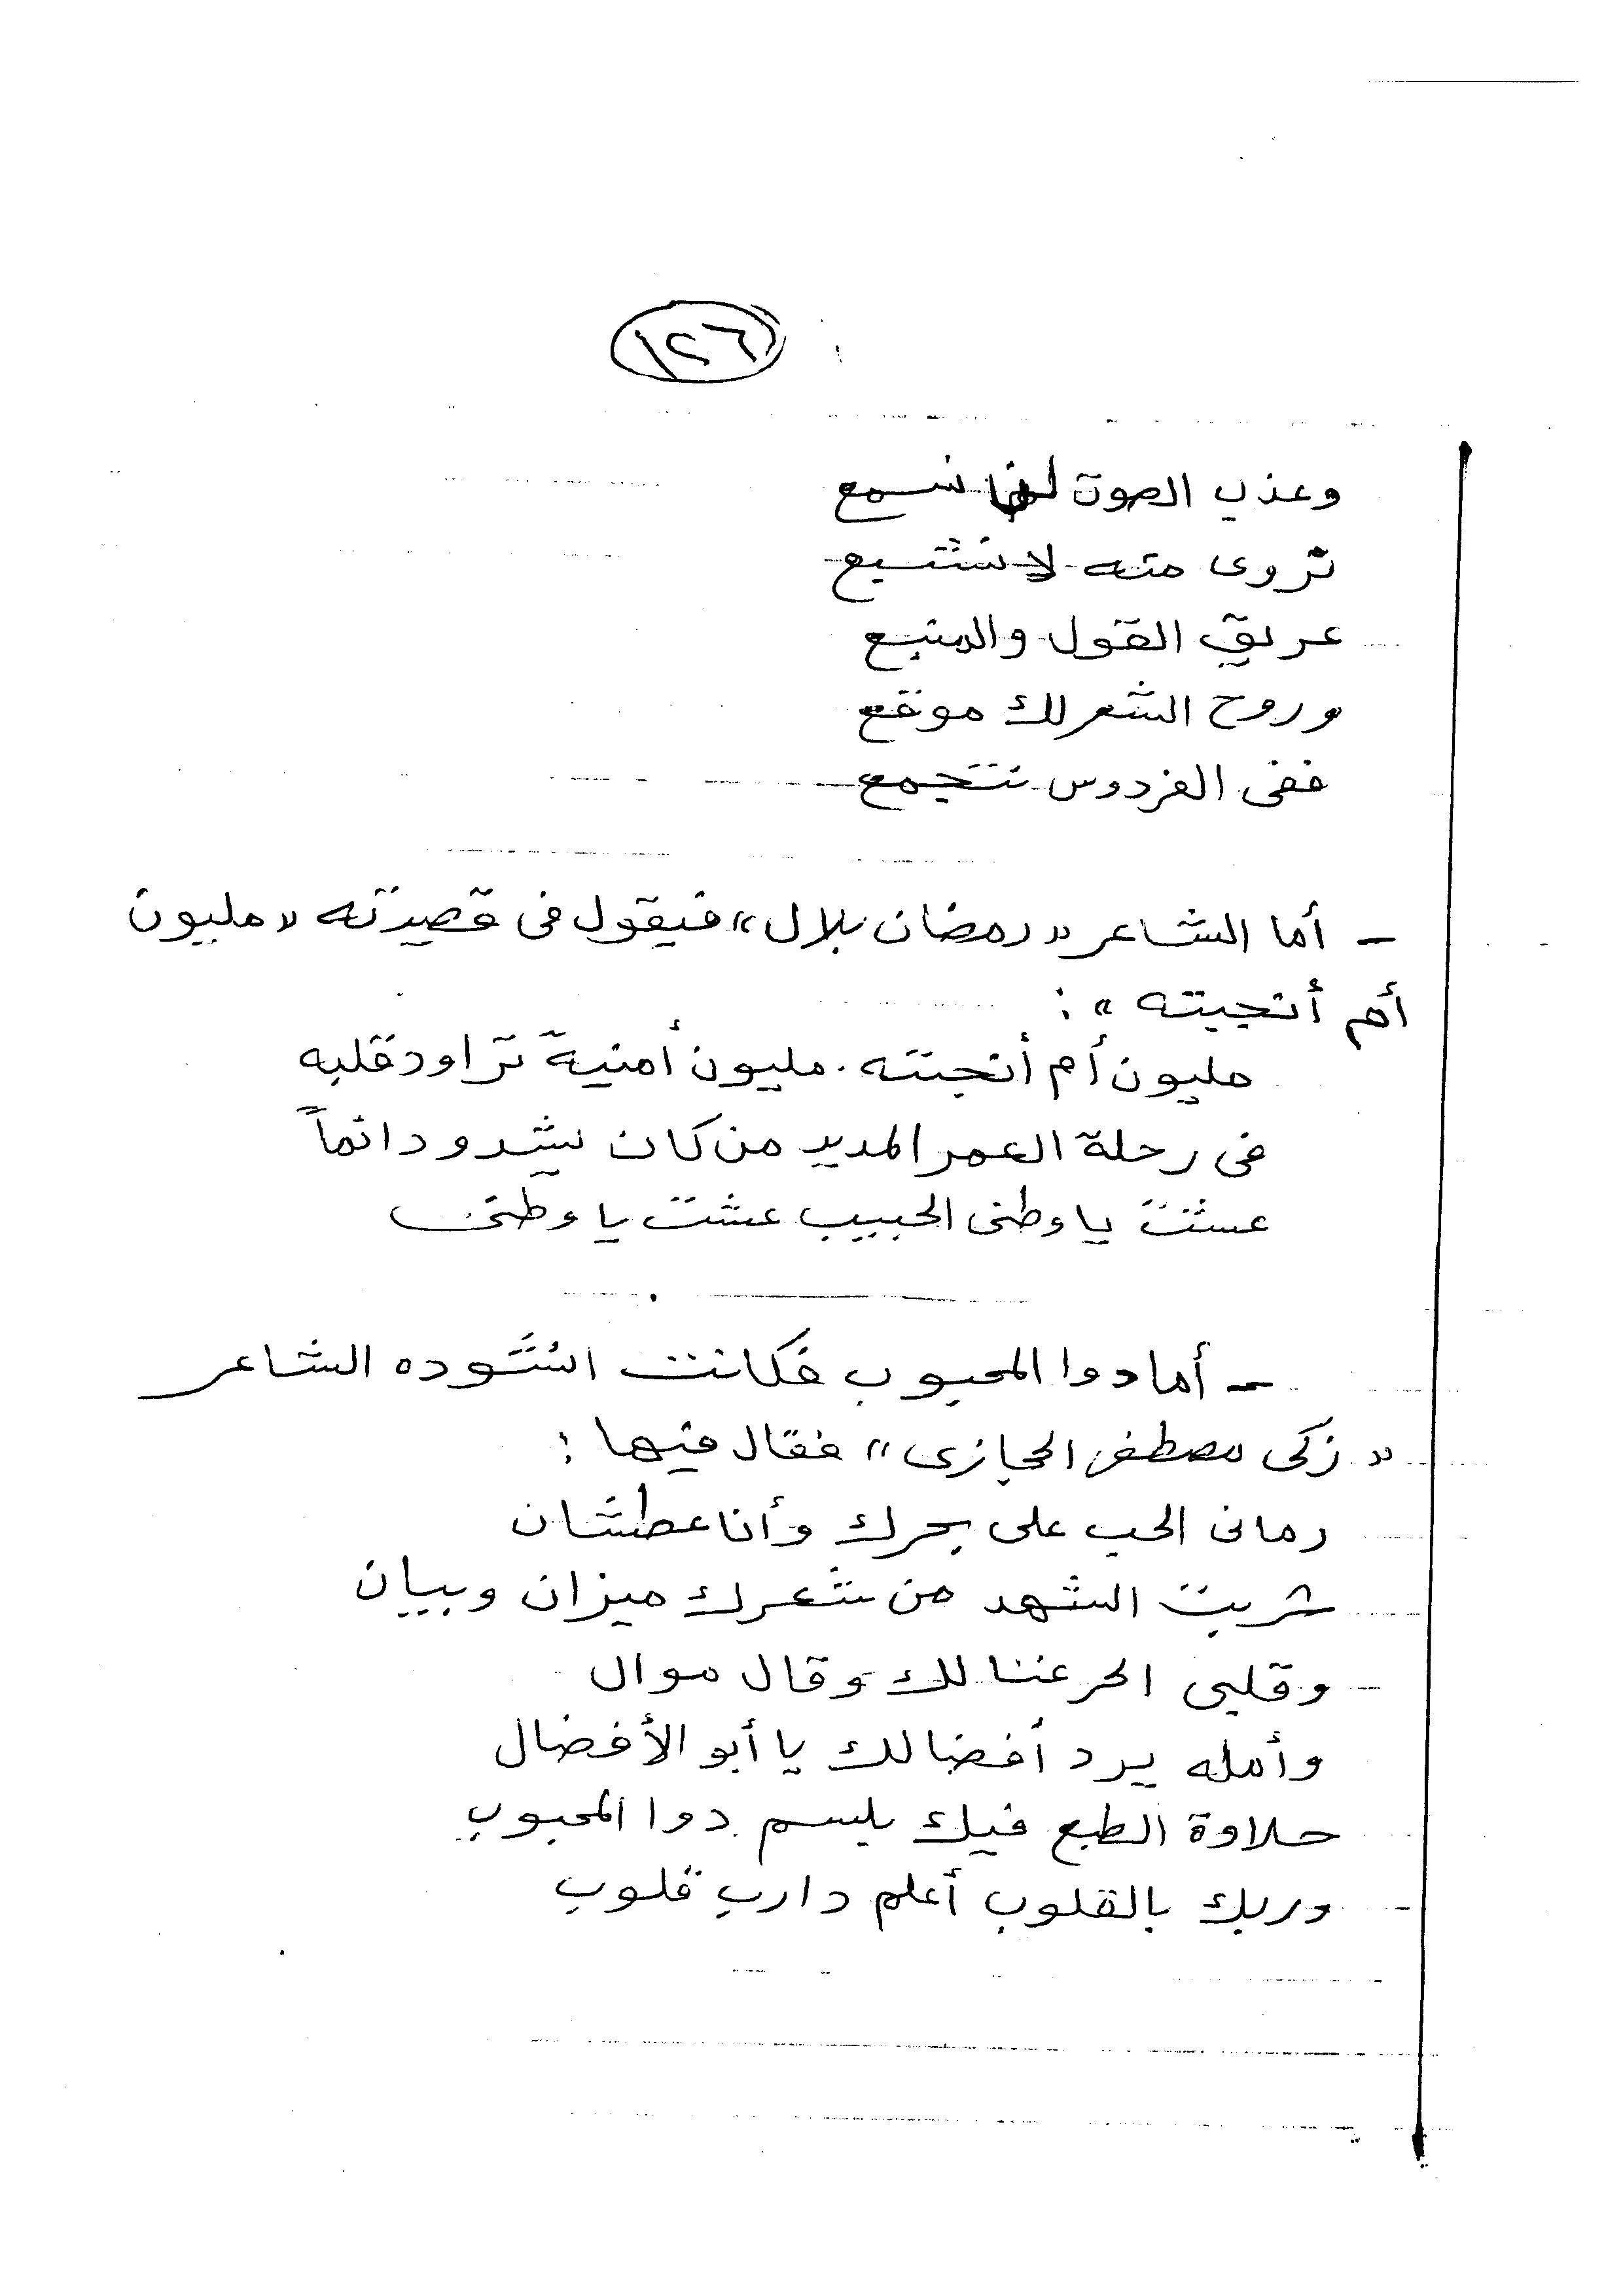 ١٢٦
وعذب الصوت لنا نسمع
نروى منه لا نشبع
عريق القول والمنبع
وروح الشعر لك موقع
ففى الفردوس نتجمع
- أما الشاعر « رمضان بلال » فيقول فى قصيدته « مليون
أم أنجبته » :
مليون أم أنجبته . مليون أمنية تراود قلبه
فى رحلة العمر المديد من كان يشدو دائماً
عشت يا وطنى الحبيب عشت يا وطنى
- أما دوا المحبوب فكانت انشوده الشاعر
« زكى مصطفى الحجازى » فقال فيها :
رمانى الحب على بحرك وأنا عطشان
شربت الشهد من شعرك ميزان وبيان
وقلبى الحر غنا لك وقال موال
وأمله يرد أفضالك يا أبو الأفضال
حلاوة الطبع فيك بلسم دوا المحبوب
وربك بالقلوب أعلم دارب قلوب